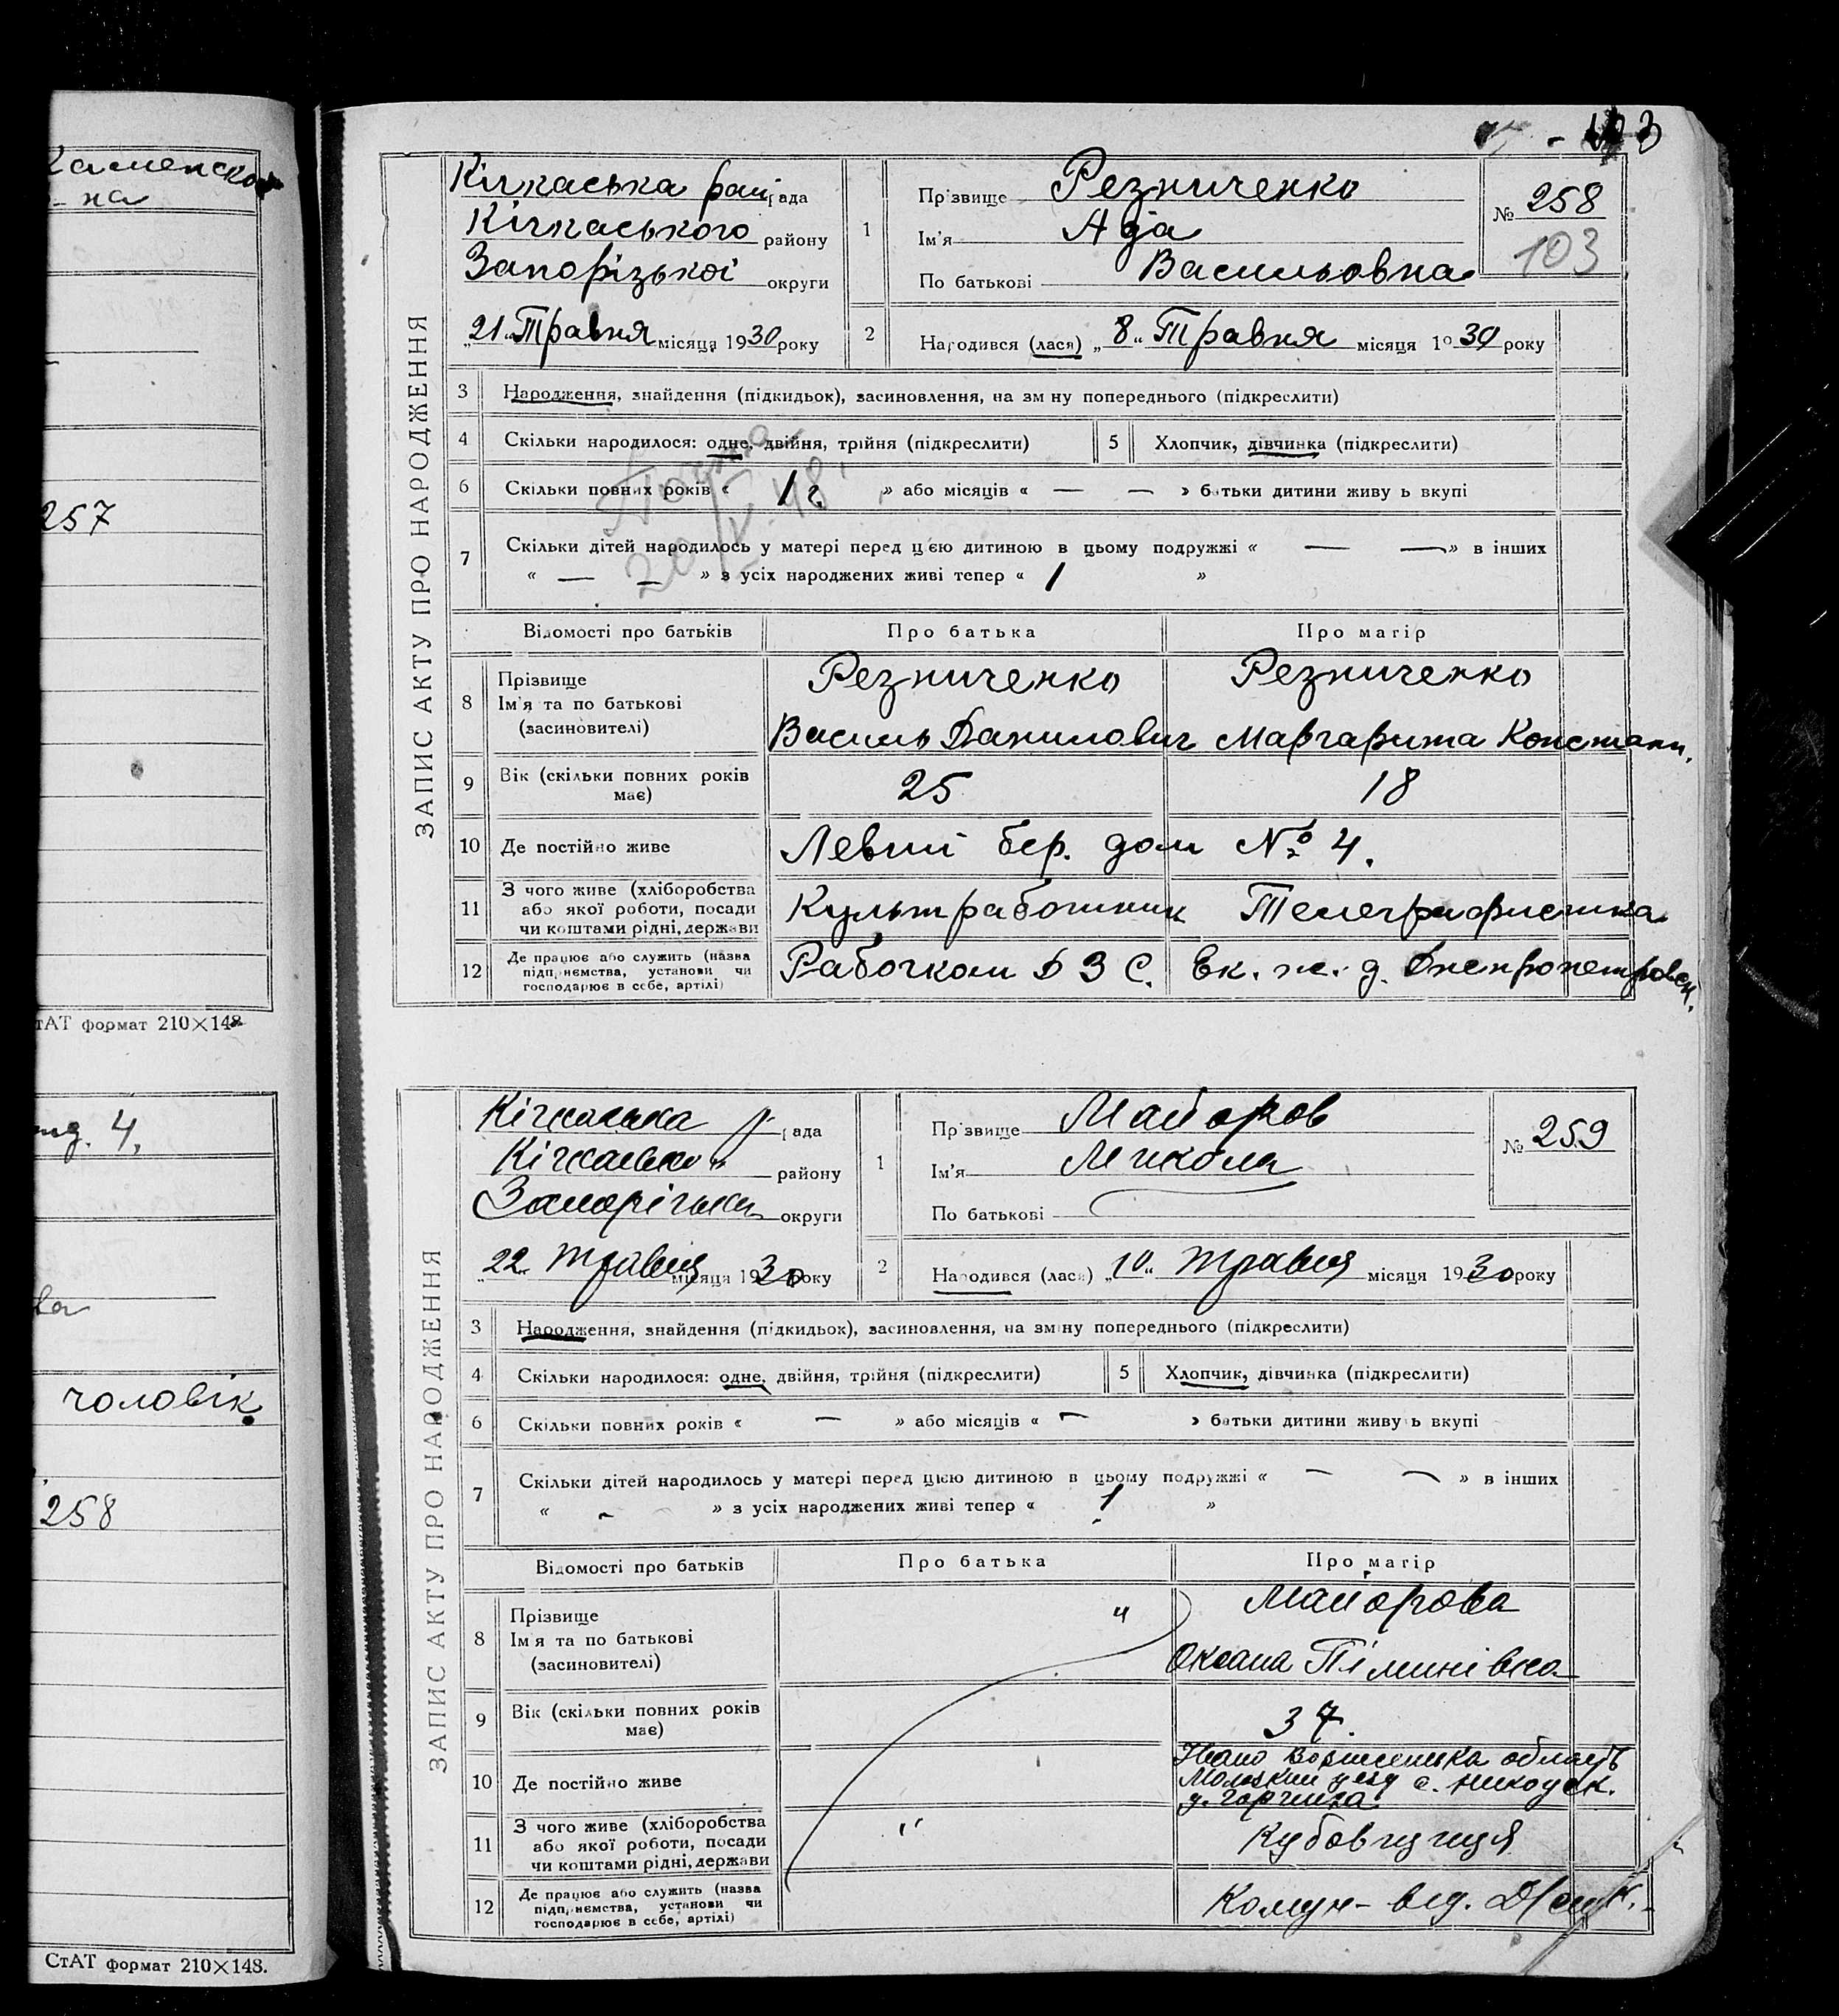 Каменско
на
257
СтАТ формат 210×148
4.
чоловік
258
СтАТ формат 210×148.
103
ЗАПИС АКТУ ПРО НАРОДЖЕННЯ
Кічкаська рай рада
Кічкаського району
Запорізької округи
„21“ Травня місяця 1930 року
1
Прізвище Резниченко
Ім'я Ада
По батькові Васильовна
№ 258
103
2
Народився (лася) „8“ Травня місяця 1930 року
3 Народження, знайдення (підкидьок), засиновлення, на зміну попереднього (підкреслити)
4 Скільки народилося: одне, двійня, трійня (підкреслити) 5 Хлопчик, дівчинка (підкреслити)
6 Скільки повних років « 1 г. » або місяців « — — » батьки дитини живуть вкупі
20/V-48
7 Скільки дітей народилось у матері перед цією дитиною в цьому подружжі « — — » в інших
« — — » з усіх народжених живі тепер « 1 »
Відомості про батьків Про батька Про матір
8 Прізвище Ім'я та по батькові (засиновителі)
Резниченко Резниченко
Василь Данилович Маргарита Констант.
9 Вік (скільки повних років має) 25 18
10 Де постійно живе Левий бер. дом № 4.
11 З чого живе (хліборобства або якої роботи, посади чи коштами рідні, держави Культработник Телеграфистка
12 Де працює або служить (назва підприємства, установи чи господарює в себе, артілі) Рабочком ДЗС. Ек. ж. д. Днепропетровск.
ЗАПИС АКТУ ПРО НАРОДЖЕННЯ
Кічкаська р. рада
Кічкасько району
Запорізька округи
„22 травня місяця 1930 року
1
Прізвище Майоров
Ім'я Микола
По батькові
№ 259
2
Народився (лася) „10“ травня місяця 1930 року
3 Народження, знайдення (підкидьок), засиновлення, на зміну попереднього (підкреслити)
4 Скільки народилося: одне, двійня, трійня (підкреслити) 5 Хлопчик, дівчинка (підкреслити)
6 Скільки повних років « — » або місяців « — » батьки дитини живуть вкупі
7 Скільки дітей народилось у матері перед цією дитиною в цьому подружжі « — — » в інших
« - - » з усіх народжених живі тепер « 1 »
Відомості про батьків Про батька Про матір
8 Прізвище Ім'я та по батькові (засиновителі)
" Майорова
Оксана Піминівна
9 Вік (скільки повних років має) 37.
10 Де постійно живе
Ивано Вознесенська область
с.
11 З чого живе (хліборобства або якої роботи, посади чи коштами рідні, держави "
12 Де працює або служить (назва підприємства, установи чи господарює в себе, артілі) Комун- від.